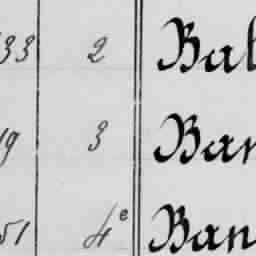 33 2 Bal
19 3 Ban
51 4e Ban